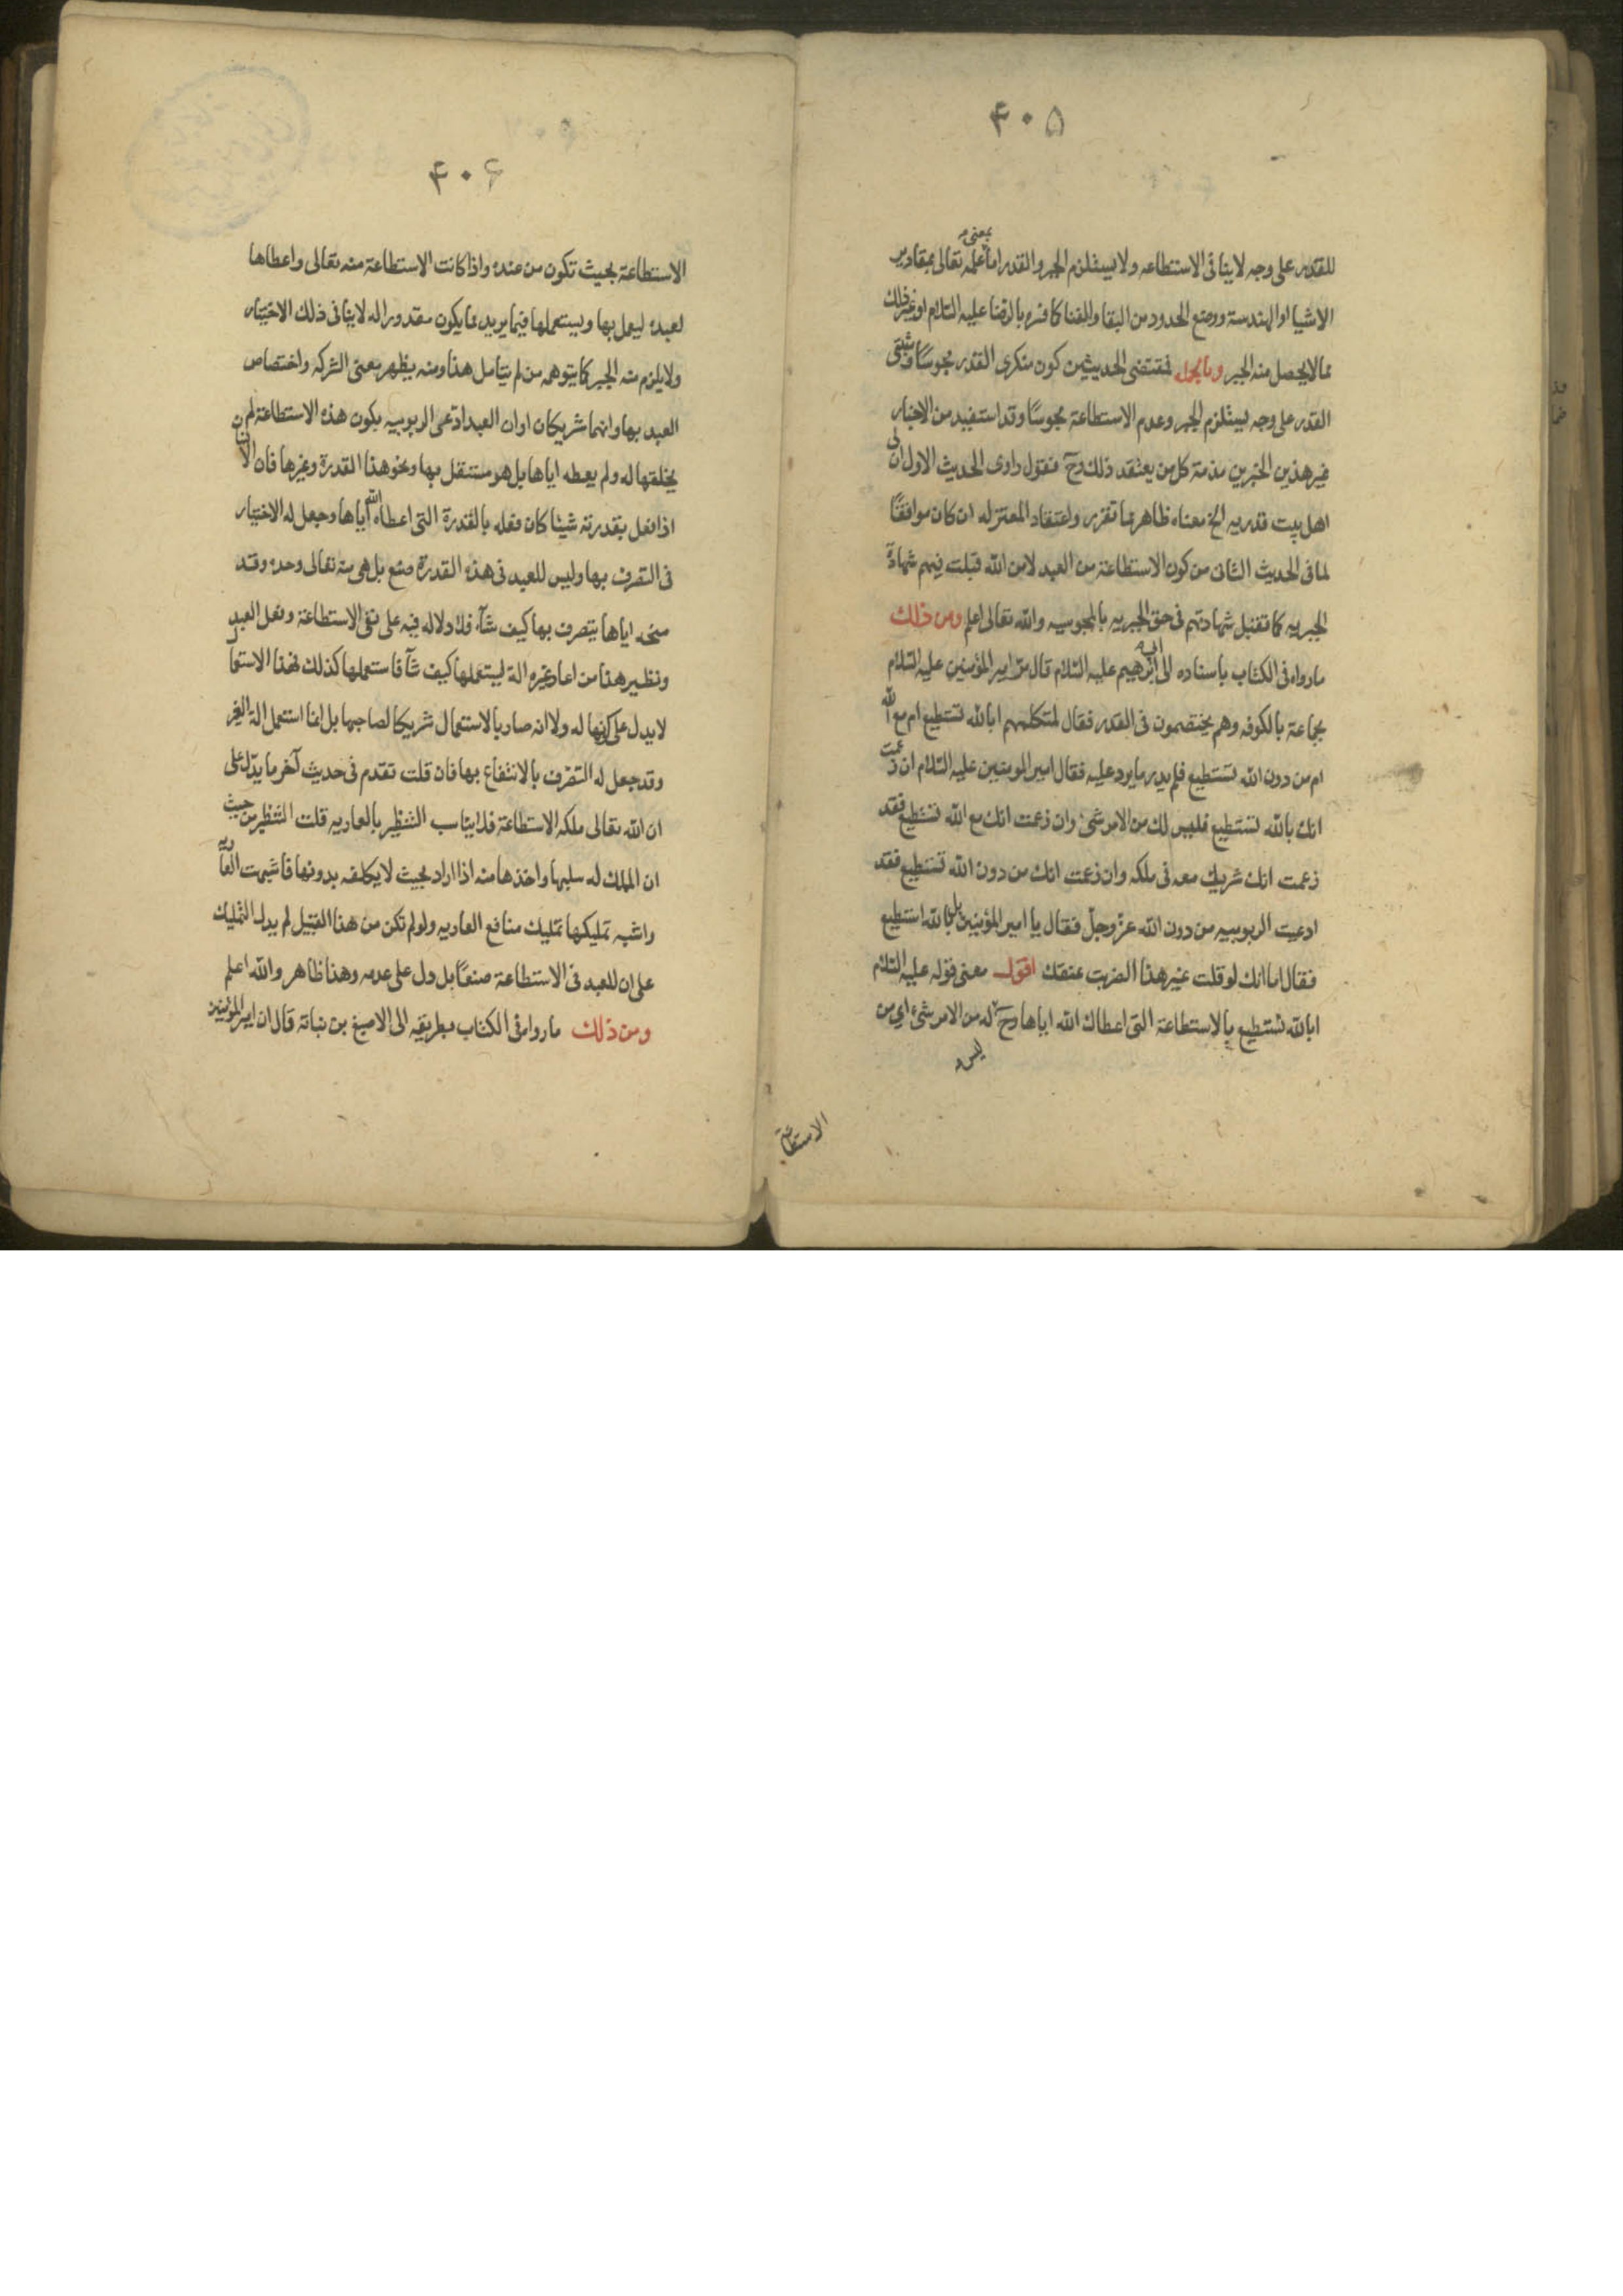 ۴۰۵
للقدر على وجه لا ينافى الاستطاعه ولا يستلزم الجبر والقدر اما بمعنى علمه تعالى بمقادير
الاشيا او الهندسة ووضع الحدود من البقا والفنا كما فسره بالرضا عليه السلام او غير ذلك
مما لا يحصل منه الجبر وبالجمله فمقتضى الحديثين كون منكرى القدر مجوسًا ومثبتى
القدر على وجه يستلزم الجبر وعدم الاستطاعة مجوسًا وقد استفيد من الاخبار
غير هذين الخبرين مذمة كل من يعتقد ذلك وح فنقول راوى الحديث الاول ان لى
اهل بيت قدريه الخ معناه ظاهر مما تقرر واعتقاد المعتزله ان كان موافقًا
لما فى الحديث الثانى من كون الاستطاعة من العبد لا من الله قبلت فيهم شهادة
الجبريه كما تقبل شهادتهم فى حق الجبريه بالمجوسيه والله تعالى اعلم ومن ذلك
ما رواه فى الكتاب باسناده الى ابرهيم عليه السلام قال مر امير المؤمنين عليه السلام
بجماعة بالكوفه وهم يختصمون فى القدر فقال لمتكلمهم ابالله تستطيع ام مع الله
ام من دون الله تستطيع فلم يدر ما يرد عليه فقال امير المومنين عليه السلام ان زعمت
انك بالله تستطيع فليس لك من الامر شىء وان زعمت انك مع الله تستطيع فقد
زعمت انك شريك معه فى ملكه وان زعمت انك من دون الله تستطيع فقد
ادعيت الربوبيه من دون الله عز وجل فقال يا امير المؤمنين بل بالله استطيع
فقال اما انك لو قلت غير هذا لضربت عنقك اقول معنى قوله عليه السلام
ابالله تستطيع بالاستطاعة التى اعطاك الله اياها وح ليس له من الامر شىء اى من
الاستطاعة
۴۰۶
الاستطاعة بحيث تكون من عنده واذا كانت الاستطاعة منه تعالى واعطاها
لعبده ليعمل بها ويستعملها فيما يريد مما يكون مقدورا له لا ينافى ذلك الاختيار
ولا يلزم منه الجبر كما يتوهمه من لم يتامل هذا ومنه يظهر معنى الشركه واختصاص
العبد بها وانهما شريكان او ان العبد ادعى الربوبيه بكون هذه الاستطاعة لم
يخلقها له ولم يعطه اياها بل هو مستقل بها ونحو هذا القدرة وغيرها فان الانسان
اذا فعل بقدرته شيئا كان فعله بالقدرة التى اعطاه الله اياها وجعل له الاختيار
فى التصرف بها وليس للعبد فى هذه القدرة صنع بل هى منه تعالى وحده وقد
منحه اياها يتصرف بها كيف شآء فلا دلاله فيه على نفى الاستطاعة وفعل العبد
ونظير هذا من اعار غيره الة ليستعملها كيف شآ فاستعملها كذلك فهذا الاستعمال
لا يدل على كونها له ولا انه صار بالاستعمال شريكا لصاحبها بل انما استعمل الة الغير
وقد جعل له التصرف بالانتفاع بها فان قلت تقدم فى حديث آخر ما يدل على
ان الله تعالى ملكه الاستطاعة فلا يناسب التنظير بالعاريه قلت التنظير من حيث
ان الملك له سلبها واخذها منه اذا اراد بحيث لا يكلفه بدونها فاشبهت العارية
واشبه تمليكها تمليك منافع العاريه ولو لم تكن من هذا القبيل لم يدل التمليك
على ان للعبد فى الاستطاعة صنعًا بل دل على عدمه وهذا ظاهر والله اعلم
ومن ذلك ما رواه فى الكتاب بطريقه الى الاصبغ بن نباتة قال ان امير المؤمنين